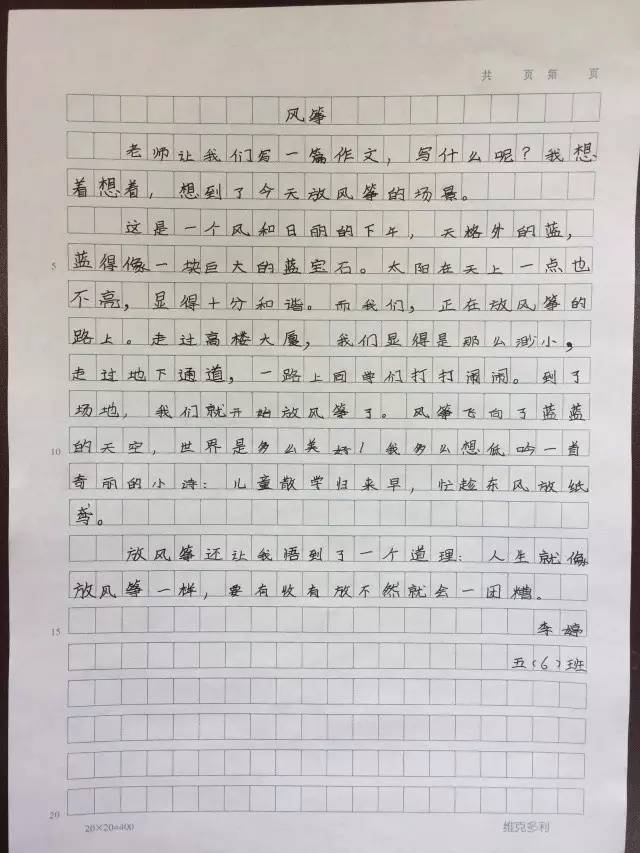 共 页 第 页
风筝
老师让我们写一篇作文，写什么呢？我想
着想着，想到了今天放风筝的场景。
这是一个风和日丽的下午，天格外的蓝，
5 蓝得像一块巨大的蓝宝石。太阳在天上一点也
不亮，显得十分和谐。而我们，正在放风筝的
路上。走过高楼大厦，我们显得是那么渺小，
走过地下通道，一路上同学们打打闹闹。到了
场地，我们就开始放风筝了。风筝飞向了蓝蓝
10 的天空，世界是多么美好！我多么想低吟一首
奇丽的小诗：儿童散学归来早，忙趁东风放纸
鸢。
放风筝还让我悟到了一个道理：人生就像
放风筝一样，要有收有放不然就会一团糟。
15 李婷
五（6）班
20
20×20=400 维克多利